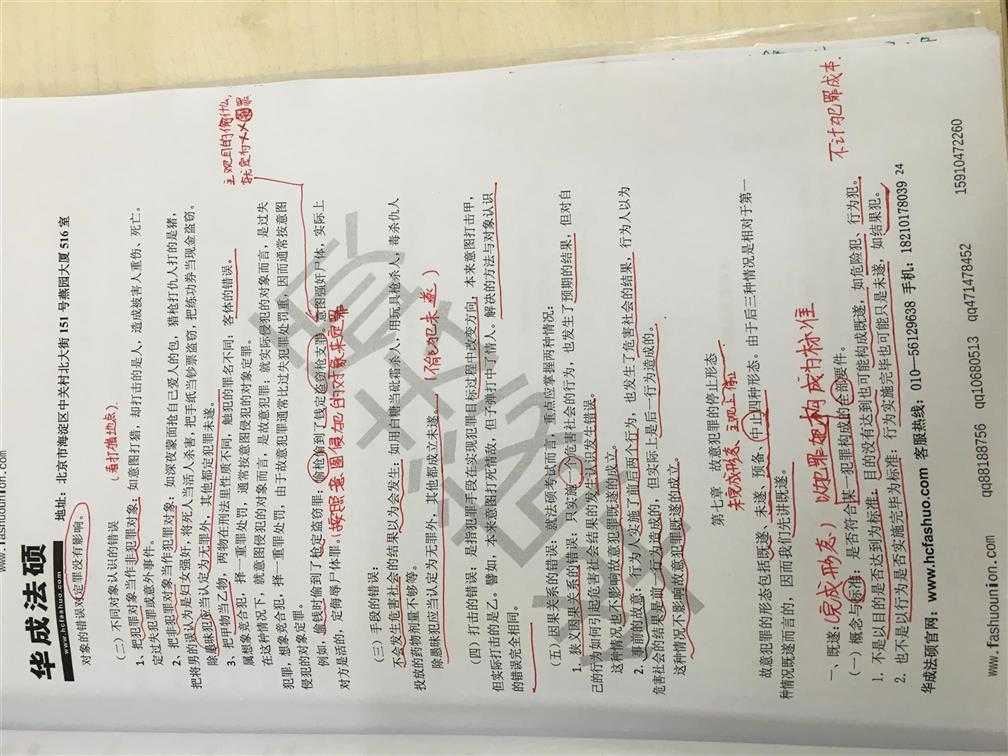 华成法硕
www.hcfashuo.com
地址：北京市海淀区中关村北大街 151 号燕园大厦 516 室
对象的错误对定罪没有影响。
（二）不同对象认识的错误
（看打猎地点）
1、把犯罪对象当作非犯罪对象：如意图打猪，却打击的是人，造成被害人重伤、死亡。
定过失犯罪或意外事件。
2、把非犯罪对象当作犯罪对象：如深夜蒙面抢自己爱人的包，猎枪打仇人打的是猪，
把将男的误认为是妇女强奸，将死人当活人杀害，把手纸当钞票盗窃，把练功券当现金盗窃。
除愚昧犯应当认定为无罪外，其他都定犯罪未遂。
3、把甲物当乙物，两物在刑法里性质不同，触犯的罪名不同：客体的错误。
属想象竞合犯，择一重罪处罚，通常按意图侵犯的对象定罪。
在这种情况下，就意图侵犯的对象而言，是故意犯罪；就实际侵犯的对象而言，是过失
犯罪，想象竞合犯，择一重罪处罚，由于故意犯罪通常比过失犯罪处罚重，因而通常按意图
侵犯的对象定罪。
主观目的偷什么，
就定何
例如：偷钱时偷到了枪定盗窃罪；偷枪偷到了钱定盗窃枪支罪；意图强奸尸体，实际上
对方是活的，定侮辱尸体罪。（按照意图侵犯的对象来定罪
（三）手段的错误：
不会发生危害社会的结果以为会发生：如用白糖当砒霜杀人，用玩具枪杀人，毒杀仇人
投放的药物剂量不够等。
除愚昧犯应当认定为无罪外，其他都成立未遂。（不能犯未遂）
（四）打击的错误：是指犯罪手段在实现犯罪目标过程中改变方向，本来意图打击甲，
但实际打击的是乙。譬如，本来意图打死情敌，但子弹打中了情人。解决的方法与对象认识
的错误完全相同。
（五）因果关系的错误：就法硕考试而言，重点应掌握两种情况：
1、狭义因果关系的错误：只实施一个危害社会的行为，也发生了预期的结果，但对自
己的行为如何引起危害社会结果的发生认识发生错误。
这种情况也不影响故意犯罪既遂的成立。
2、事前的故意：行为人实施了前后两个行为，也发生了危害社会的结果，行为人以为
危害社会的结果是前一行为造成的，但实际上是后一行为造成的。
这种情况不影响故意犯罪既遂的成立。
第七章 故意犯罪的停止形态
未完成形态、主观上
故意犯罪的形态包括既遂、未遂、预备、中止四种形态。由于后三种情况是相对于第一
种情况既遂而言的，因而我们先讲既遂。
一、既遂：（完成形态）以犯罪构成为标准
（一）概念与标准：是否符合某一犯罪构成的全部要件。
1、不是以目的是否达到为标准。目的没有达到也可能构成既遂，如危险犯、行为犯。
不计犯罪成本.
2、也不是以行为是否实施完毕为标准：行为实施完毕也可能只是未遂，如结果犯。
华成法硕官网：www.hcfashuo.com 客服热线：010—56129638 手机：18210178039 24
www.fashuounion.com qq88188756 qq10680513 qq471478452 15910472260